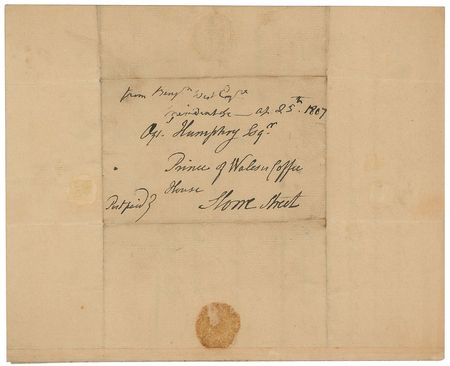 from Benjn West Esqr
ap. 25th. 1807
Humphry Esqr
Prince of Wales's Coffee
House
Street
Post paid